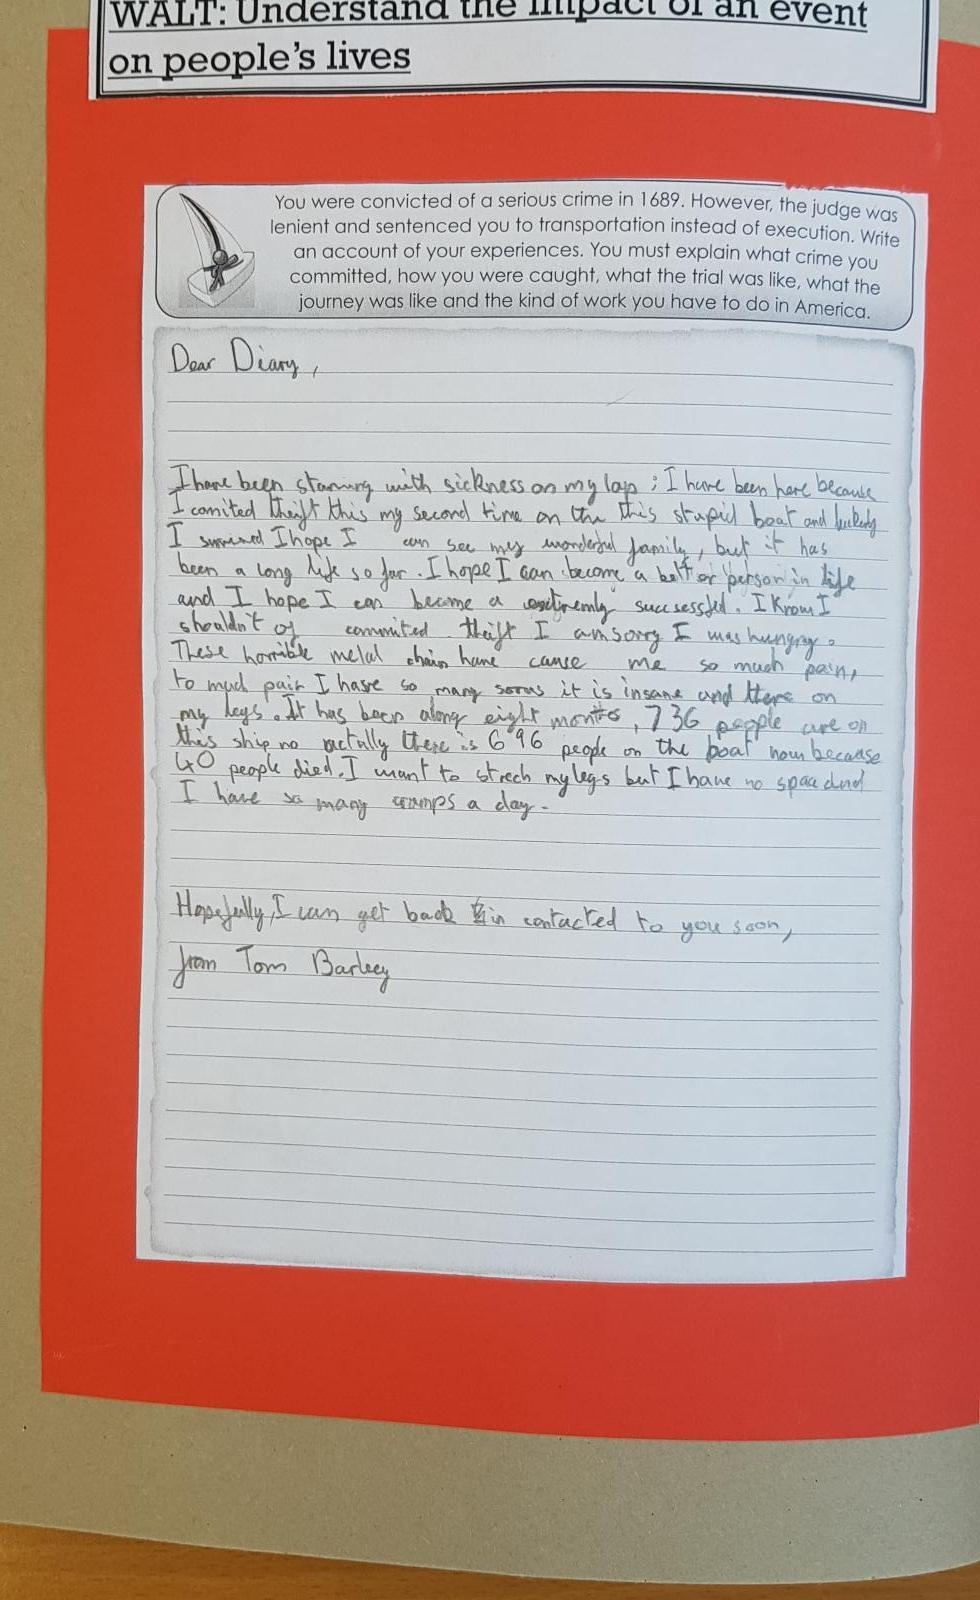 WALT: Understand the impact of an event
on people's lives
You were convicted of a serious crime in 1689. However, the judge was
lenient and sentenced you to transportation instead of execution. Write
an account of your experiences. You must explain what crime you
committed, how you were caught, what the trial was like, what the
journey was like and the kind of work you have to do in America.
Dear Diary,
I have been starving with sickness on my lap; I have been here because
I comited theift this my second time on the this stupid boat and luckely
I survived I hope I can see my wonderful family, but it has
been a long life so far. I hope I can become a better person in life
and I hope I can become a extremly successful. I know I
shouldn't of commited theift I am sorry I was hungry.
These horrible metal chain have cause me so much pain,
to much pain I have so many sores it is insane and there on
my legs. It has been along eight months, 736 people are on
this ship no actully there is 696 people on the boat now because
40 people died. I want to strech my legs but I have no space and
I have so many cramps a day.
Hopefully, I can get back in contacted to you soon,
from Tom Barley